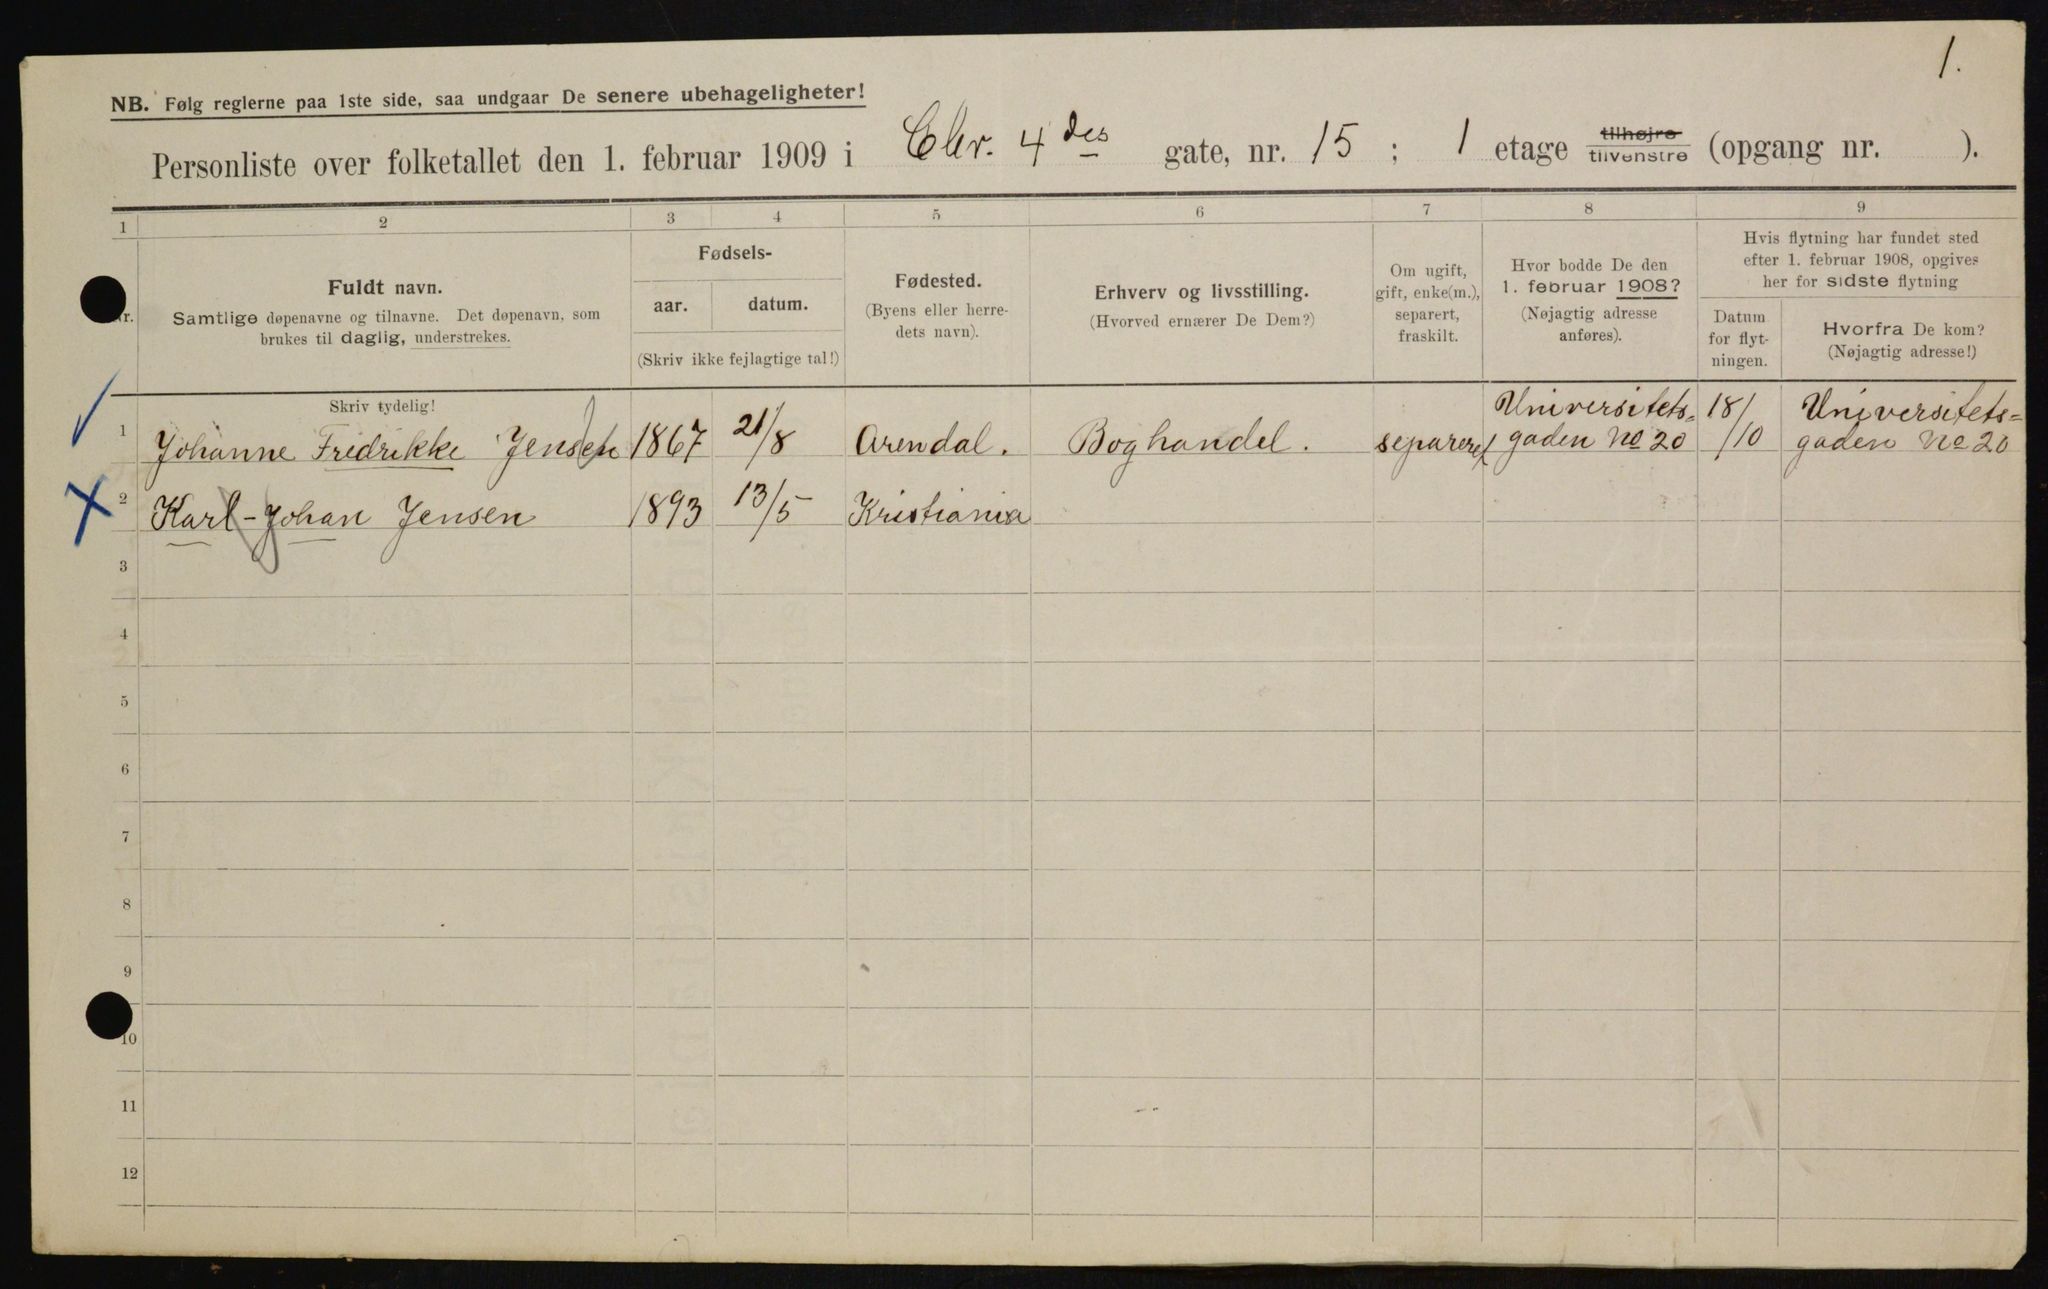 1.
NB. Følg reglerne paa 1ste side, saa undgaar De senere ubehageligheter!
Personliste over folketallet den 1. februar 1909 i Chr. 4 des gate, nr. 15 ; 1 etage tilhøjre tilvenstre (opgang nr. ).
1 2 3 4 5 6 7 8 9
Nr.
Fuldt navn.
Samtlige døpenavne og tilnavne. Det døpenavn, som
brukes til daglig, understrekes.
Fødsels-
aar. datum.
(Skriv ikke fejlagtige tal!)
Fødested.
(Byens eller herre-
dets navn).
Erhverv og livsstilling.
(Hvorved ernærer De Dem?)
Om ugift,
gift, enke(m.),
separert,
fraskilt.
Hvor bodde De den
1. februar 1908?
(Nøjagtig adresse
anføres).
Hvis flytning har fundet sted
efter 1. februar 1908, opgives
her for sidste flytning
Datum
for flyt-
ningen.
Hvorfra De kom?
(Nøjagtig adresse!)
Skriv tydelig!
1 Johanne Fredrikke Jensen 1867 21/8 Arendal. Boghandel. separeret Universitets-
gaden No 20 18/10 Universitets=
gaden No 20
2 Karl-Johan Jensen 1893 13/5 Kristiania
3
4
5
6
7
8
9
10
11
12